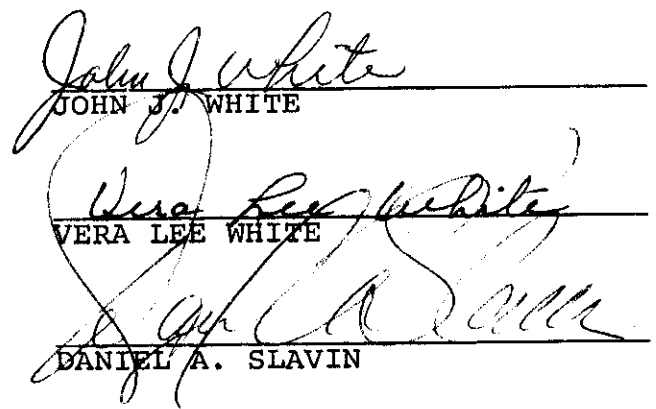 John J. White
JOHN J. WHITE
Vera Lee White
VERA LEE WHITE
DANIEL A. SLAVIN